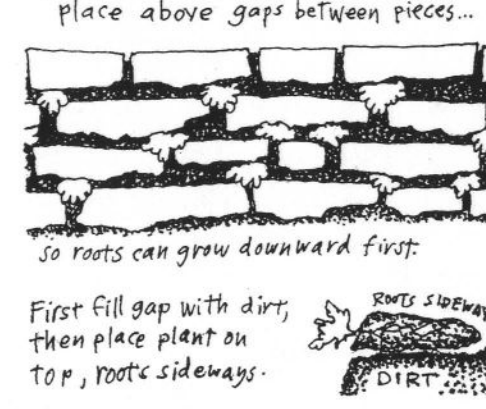 place above gaps between pieces...
so roots can grow downward first.
First fill gap with dirt,
then place plant on
top, roots sideways.
ROOTS SIDEWAY
DIRT